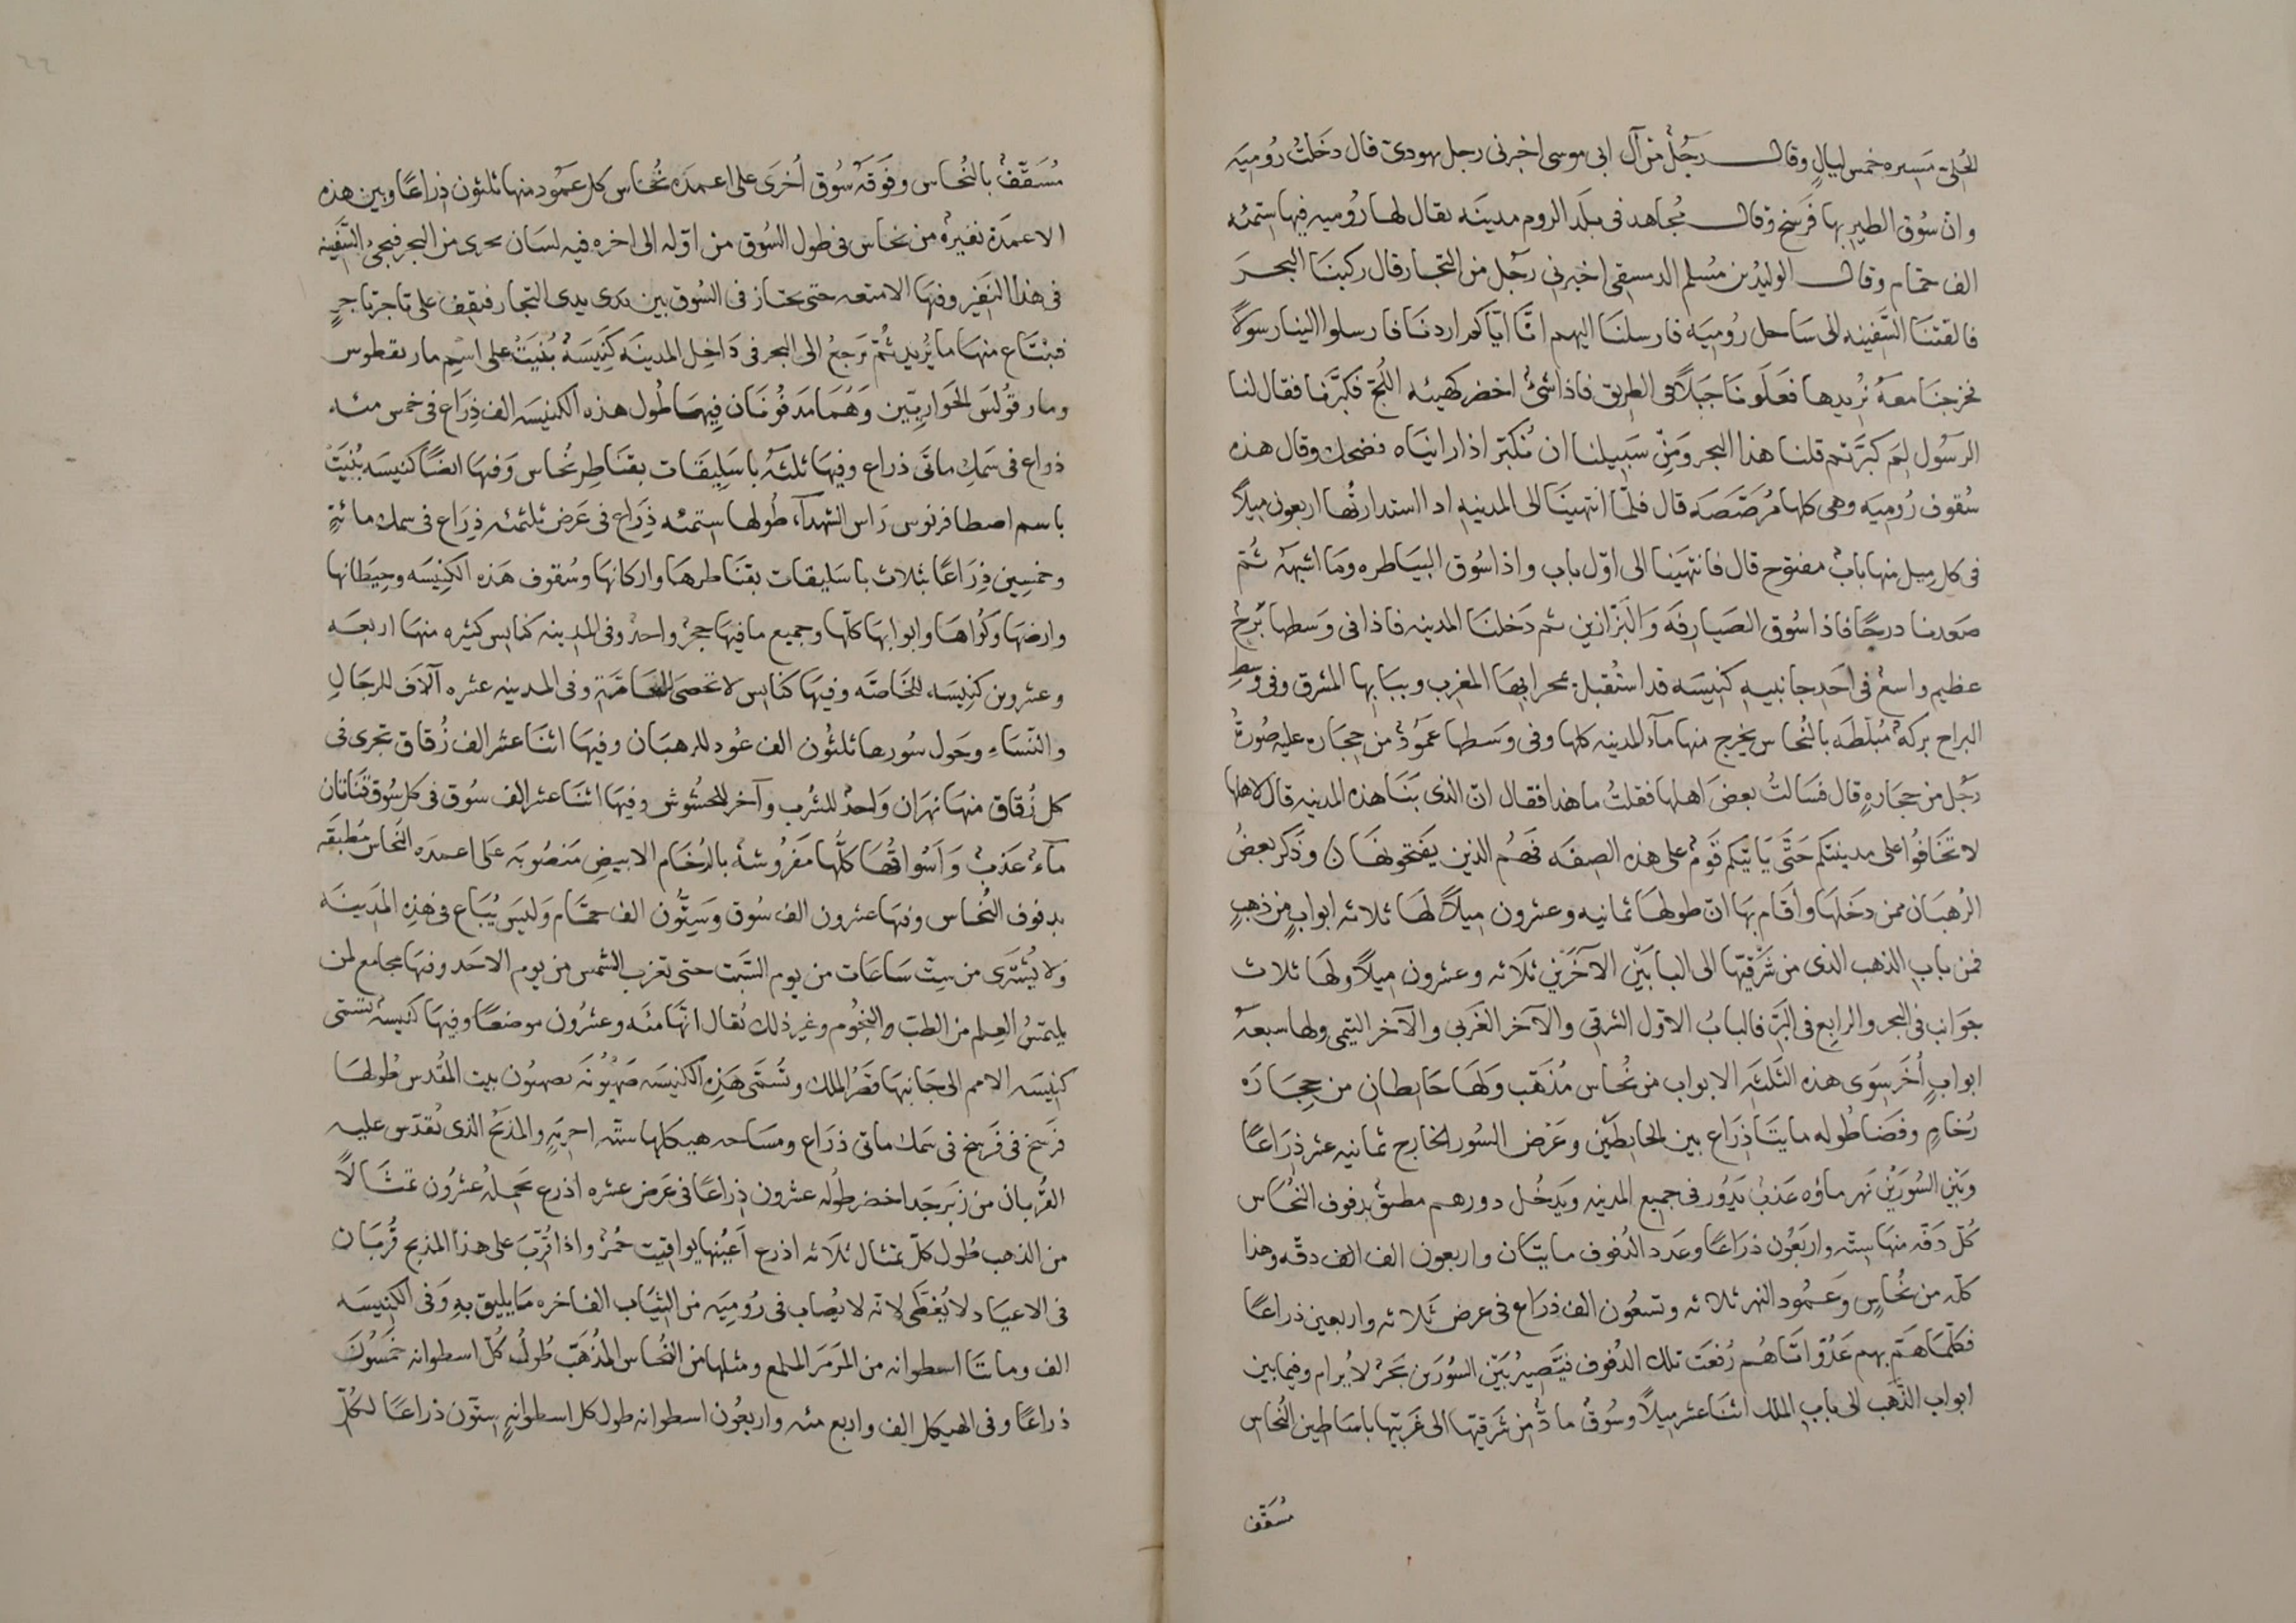 الخلىّ مَسِيره خمس ليالٍ وقال رَجُلٌ من آل ابى موسى اخبرنى رجل يهودىّ قال دخَلتُ رُومِيَه
وانّ سُوق الطير بها فَرسَخ وقال مُجاهد فى بلَد الروم مدينَه يقال لها رُوميه فيها ستمئه
الف حمّام وقال الوليدُ بن مُسلم الدمسقى اخبرنى رجُل من التجار قال ركبنَا البحرَ
فالقتنَا السَّفينه الى سَاحل رُوميَه فارسلنَا اليهم انَّا ايَّاكم اردنَا فارسلوا الينا رسولاً
فخرجنَا معَهُ نُريدها فعَلَونَا جَبَلاً فى الطريق فاذا شىءٌ اخضر كهيئه اللُجّ فكبَّرنا فقال لنا
الرسُول لِمَ كبَّرتم قلنا هذا البحر ومِن سَبِيلنا ان نُكبّر اذا راينَاه فضحك وقال هذه
سُقوف رُوميَه وهى كلها مُرَصَّصَه قال فلمّا انتهينَا الى المدنيه اذا استدارتُها اربعون ميلاً
فى كل ميل منها بابٌ مفتوح قال فانتهَينا الى اوّل باب واذا سُوق البيَاطره ومَا اشبهَهُ ثُمّ
صَعدنا درجًا فاذا سُوق الصَيارفَه وَالبَزّازين ثم دَخلنَا المدينه فاذا فى وَسَطها بُرْجٌ
عظيم واسعٌ فى اَحدِ جانبيه كنيسَه قد استُقبل بمحرابهَا المغرب وببَابها المشرق وفى وسطِ
البراح بركَهٌ مُبلّطَه بالنُحاس يخرج منها مآء المدينه كلها وفى وسَطها عمُودٌ من حِجَاره عليه صُورةُ
رَجُل من حجَارهٍ قال فسَالتُ بعضَ اهلها فقلتُ ما هذا فقال انّ الذى بنَا هذه المدينه قال لاهلها
لا تخَافُوا على مدينتكم حَتَّى يَاتيكم قَومٌ على هذه الصفَه فَهُم الذين يفتحونهَا ن وذَكر بعضُ
الرهبَان ممن دخَلهَا وأقَام بهَا انّ طولهَا ثمانيه وعشرون ميلاً لهَا ثلاثه ابوابٍ من ذهبٍ
فمن باب الذهب الذى من شَرقيّها الى البابَيْن الآخَرَين ثلاثه وعشرون ميلاً ولهَا ثلاث
جوَانب فى البحر والرابع فى البَرّ فالبابُ الاوّل الشرقى والآخر الغَربى والآخر اليَمنى ولها سبعهُ
ابوابٍ أُخَر سِوَى هذه الثلثَه الابواب من نُحاس مُذهَب ولَهَا حَايطان من حِجَارَه
رُخامٍ وفَضَا طُوله مايتَا ذرَاع بين الحايطَين وعَرض السُور الخارج ثمانيه عشر ذرَاعًا
وبَيْن السُورَيْن نَهر ماؤه عَذبٌ يَدُور فى جميع المدنيه ويَدخُل دورهم مطبقٌ بدفوف النُحَاس
كُلّ دفّه منهَا ستّه واربَعُون ذرَاعًا وعَدد الدُفوف مايتَان واربعون الف الف دفّه وهذا
كلّه من نُحاسٍ وعَمُود النهر ثلاثه وتسعُون الف ذرَاع فى عرض ثَلاثه واربعين ذراعًا
فكلّمَا هَمّ بهم عَدُوّ اتَاهُم رُفعَت تلك الدُفوف فيَصِيرُ بَيْن السُورَين بَحرٌ لا يُرام وفيما بين
ابواب الذَهب الى باب الملك اثنَا عشر ميلاً وسُوقٌ مادٌّ من شَرقيّها الى غَربيّها باسَاطين النُحاس
مُسَقّف
مُسَقَّفٌ بالنُحاس وفَوقَهُ سُوق أُخرَى على اعمدَه نُحَاس كل عَمُود منها ثلثون ذِراعًا وبين هذه
الاعمدَة نقيرهٌ من نحاس فى طول السُوق من اوّله الى اخره فيه لسَان يجرى من البحر فيجئ السَّفينه
فى هذا النَقير وفيهَا الامتعه حتى يجتاز فى السُوق بين يدى يدى التجار فتقف على تاجر تاجرٍ
فيبْتَاع منهَا ما يُريد ثُمّ يرجعُ الى البحر فى دَاخِل المدينَه كَنِيسَهٌ بُنيَتْ على اسم مار بقطوس
ومار قولسَ الحَوارِيّين وَهُمَا مَدفُونَان فِيهَا طُول هذه الكنيسَه الف ذِرَاع فى خمس مئه
ذراع فى سَمك ماتَى ذراع وفيهَا ثلثَهُ باسَلِيقَات بقنَاطِر نُحاس وَفيهَا ايضًا كنيسَه بُنيَتْ
باسم اصطافرنوس رَاس الشهدآء طُولها ستمئه ذِرَاع فى عَرض ثلثمئه ذِرَاع فى سمك مائةٍ
وخمسِين ذِرَاعًا بثلاث باسَليقات بقنَاطرهَا واركانهَا وسُقوف هَذه الكنِيسَه وحِيطانها
وارضهَا وكُواهَا وابوابهَا كلّها وجميع ما فيهَا حجرٌ واحدٌ وفى المدينه كنايس كثيره منهَا اربعَه
وعشرون كنِيسَه للخَاصّه وفيهَا كنَايس لا تحصَى للعَامّة وفى المدينه عشره آلاف للرجَالِ
والنسَاءِ وحَول سُورها ثلثُون الف عمُود للرهبَان وفيهَا اثنَا عشر الف زُقاق تجرى فى
كل زُقاق منهَا نهرَان وَاحدٌ للشُرب وآخر للحشُوش وفيهَا اثنَا عشر الف سُوق فى كل سُوق قنَاتان
مآءٌ عَذبٌ وَاَسْواقُهَا كلّها مَفرُوشهٌ بالرُخام الابيض مَنصُوبَه عَلى اعمدَه النُحاس مُطبقَه
بدفوف النُحاس وفيهَا عشرون الف سُوق وسِتُّون الف حمّام وَليسَ يُبَاع فى هذِه المدِينَه
وَلا يُشتَرَى من سِتّ سَاعَات من يوم السَّبت حتى تغرب الشمس من يوم الاحَد وفيهَا مجامع لمن
يلتمِسُ العِلم من الطبّ والنجُوم وغير ذلك يُقال انّهَا مئَه وعشرُون موضعًا وفِيهَا كنيسَهٌ تُسمّى
كنيسَه الامم الى جَانبهَا قَصْرُ الملك وتُسَمّى هَذِه الكنيسَه صَهْيُونَه بصهيُون بيت المَقْدس طُولهَا
فَرسَخ فى فَرسَخ فى سَمك ماتى ذرَاع ومسَاحه هيكلها ستّه اجربَهٍ والمذبَحُ الذى تُقدّس عليه
القُربان من زبَرجَد اخضر طُوله عشرون ذِراعًا فى عَرض عشره اذرع يَحملهُ عشرُون تمثَالاً
من الذهب طُول كلّ تمثال ثلاثه اذرع اَعيُنها يواقيت حُمرٌ واذا قُرّبَ على هذا المذبح قُربَان
فى الاعيَاد لا يُغطّى لانّه لا يُصاب فى رُوميَه من الثيَاب الفاخره مَا يليق به وَفى الكنِيسَه
الف وماتتا اسطوانه من المَرمَر الملمع ومثلها من النُحاس المُذهَب طُولُ كُلّ اسطوانه خَمسُونَ
ذراعًا وفى الهيكل الف واربع مئه واربعُون اسطوانه طول كل اسطوانهٍ ستّون ذراعًا لكُلّ